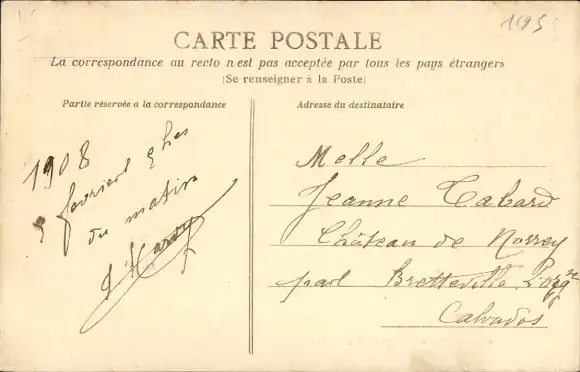 1195
CARTE POSTALE
La correspondance au recto n'est pas acceptée par tous les pays étrangers
(Se renseigner à la Poste)
Partie réservée à la correspondance
Adresse du destinataire
1908
fevrier
du matin
J Hardy
Melle
Jeanne Tabard
Château de Norrey
par Bretteville l'org
Calvados